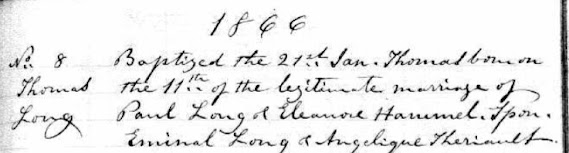 1866
No. 8 Baptized the 21st Jan. Thomas born on
Thomas the 11th of the legitimate marriage of
Long Paul Long & Eleanore Hammel. Spon.
Eminal Long & Angelique Theriault.